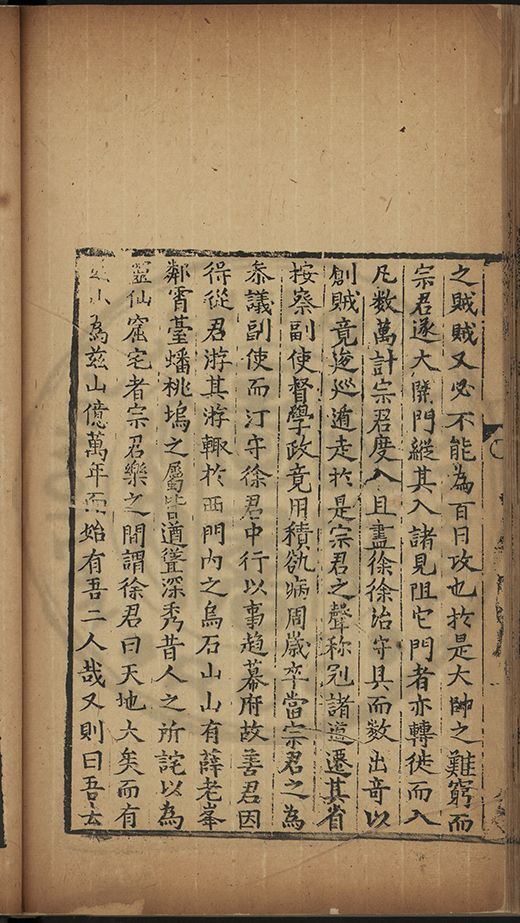 之賊賊又必不能為百日攻也於是大帥之難窮而
宗君遂大開門縱其入諸見阻它門者亦轉徙而入
凡數萬計宗君度入且盡徐徐治守具而數出奇以
創賊竟逡巡遁走於是宗君之聲称冠諸道遷其省
按察副使督學政竟用積勩病周歲卒當宗君之為
叅議副使而汀守徐君中行以事趨幕府故善君因
得從君游其游輙於西門內之烏石山山有薛老峯
鄰霄臺蟠桃塢之屬皆遒聳深秀昔人之所詫以為
靈仙窟宅者宗君樂之間謂徐君曰天地大矣而有
為茲山億萬年而始有吾二人哉又則曰吾去